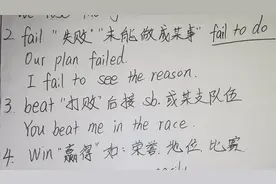 2. fail "失败" "未能做成某事" fail to do
Our plan failed.
I fail to see the reason.
3. beat "打败"后接 sb. 或某支队伍
You beat me in the race.
4. Win "赢得"如: 荣誉. 地位. 比赛